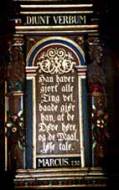 DIUNT VERBUM
Han haver
gjort alle
Ting vel,
baade gjør
han, at de
Døve høre,
og de Maal-
løse tale.
MARCUS